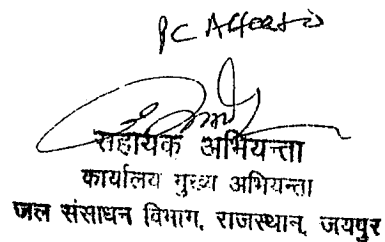 PC Attested
सहायक अभियन्ता
कार्यालय मुख्य अभियन्ता
जल संसाधन विभाग, राजस्थान, जयपुर